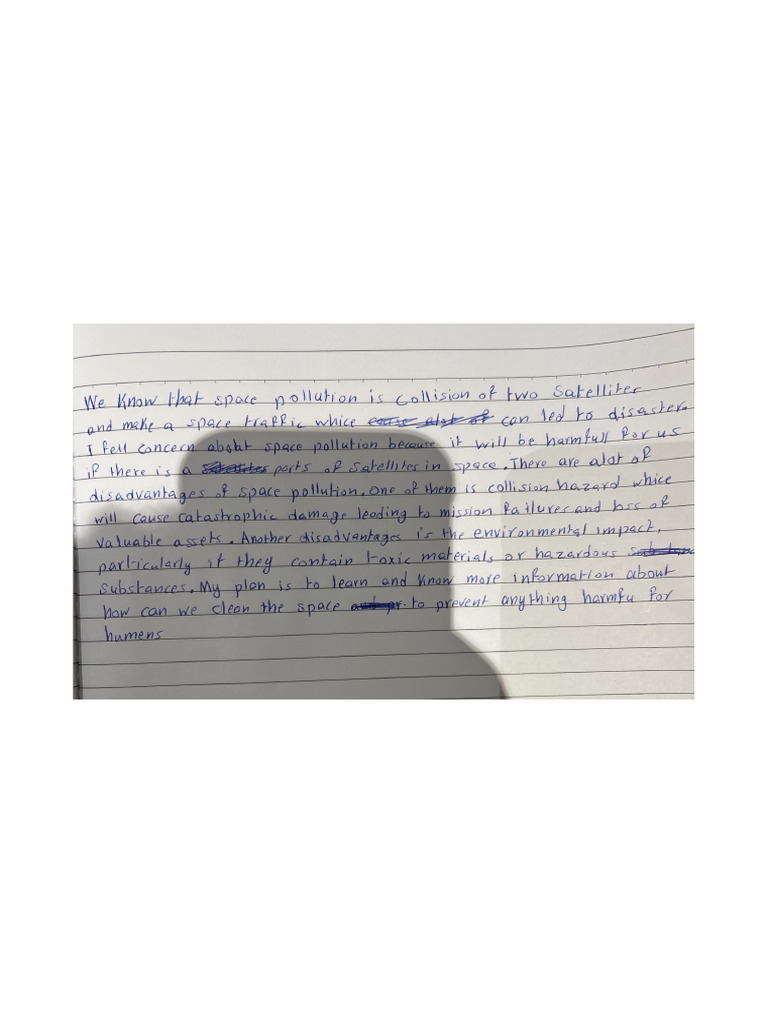 We Know that space pollution is collision of two Satellites
and make a space traffic whice can led to disaster.
I fell concern about space pollution because it will be harmfull for us
if there is a parts of satellites in space. There are alot of
disadvantages of space pollution. one of them is collision hazard whice
will cause catastrophic damage leading to mission failures and loss of
valuable assets. Another disadvantages is the environmental impact,
particularly if they contain toxic materials or hazardous
substances. My plan is to learn and know more information about
how can we clean the space to prevent anything harmfu for
humens